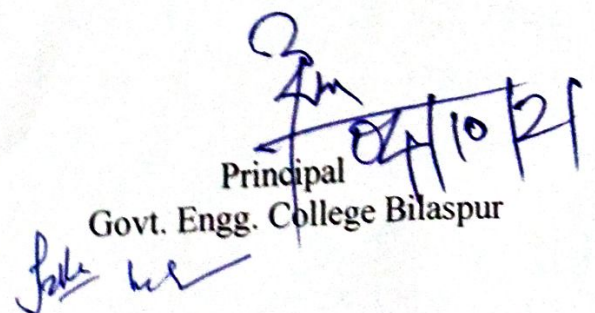 04/10/21
Principal
Govt. Engg. College Bilaspur